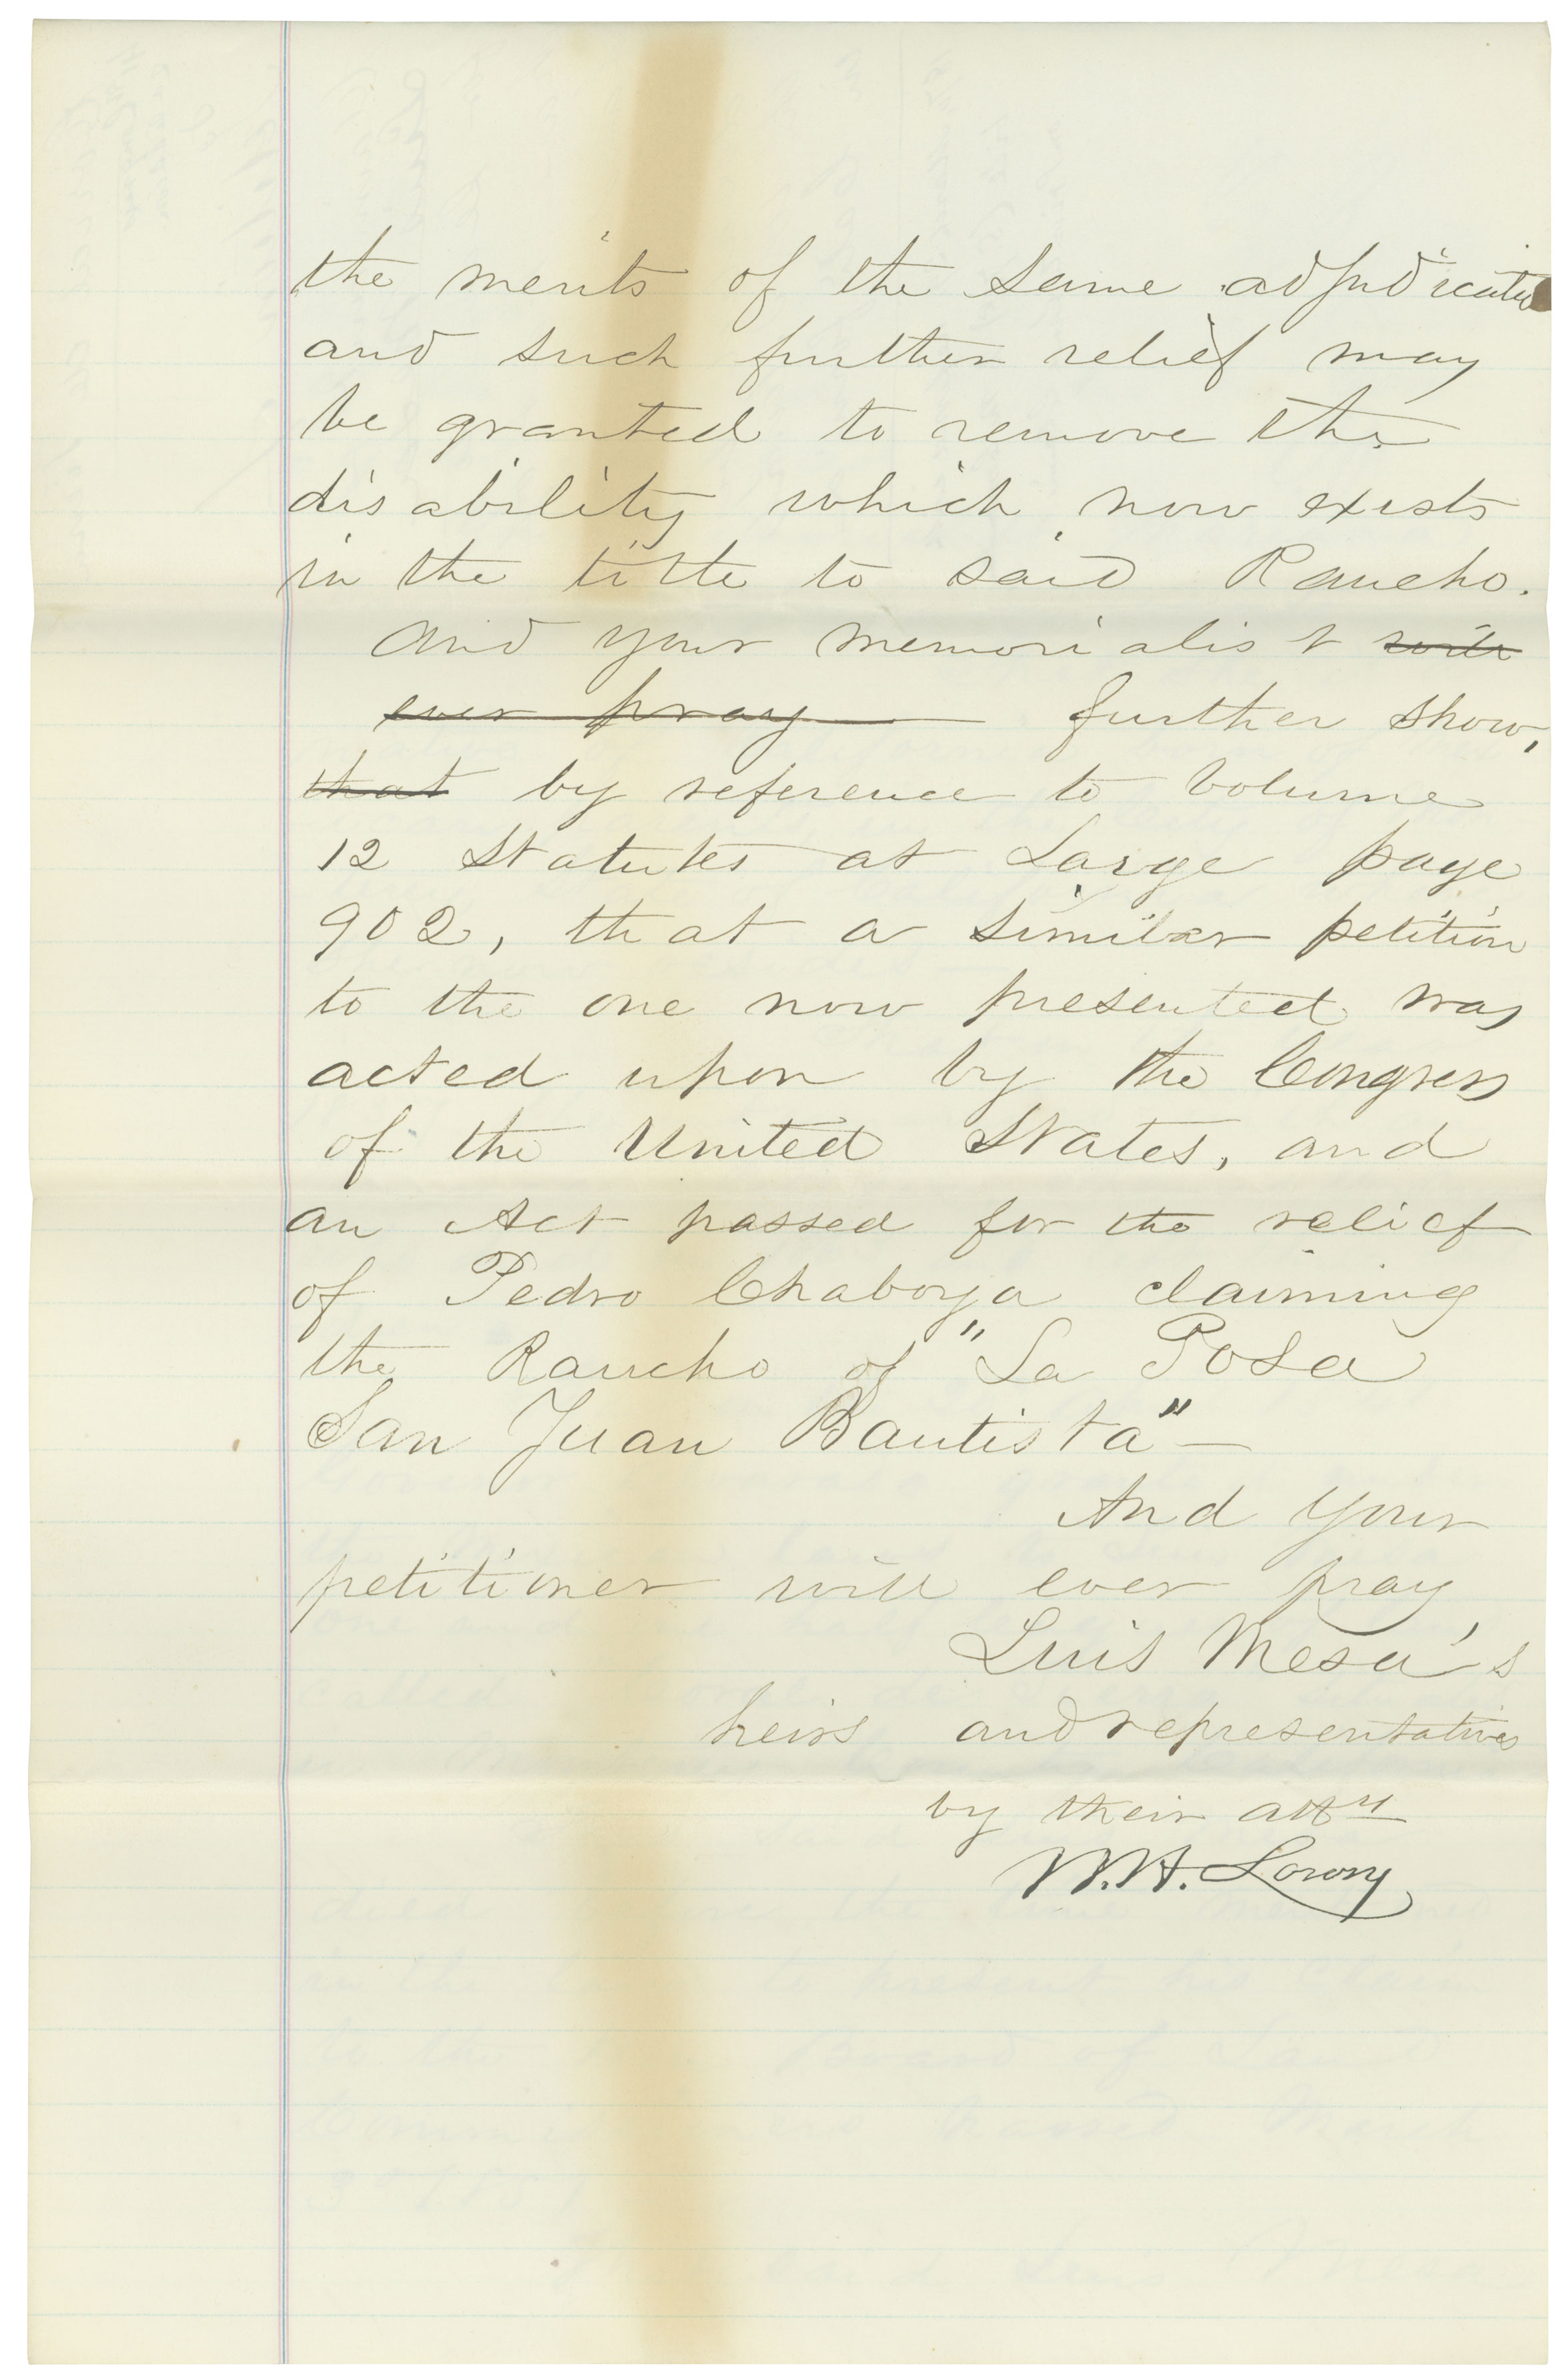 the merits of the same adjudicated
and such further relief may
be granted to remove the
disability which now exists
in the title to said Rancho.
and your memorialist will
ever pray further show,
that by reference to Volume
12 Statutes at Large page
902, that a similar petition
to the one now presented was
acted upon by the Congress
of the United States, and
an Act passed for the relief
of Pedro Chaboya claiming
the Rancho of "La Posa
San Juan Bautista"—
And your
petitioner will ever pray
Luis Mesa's
heirs and representatives
by their atty
W.H. Lowry